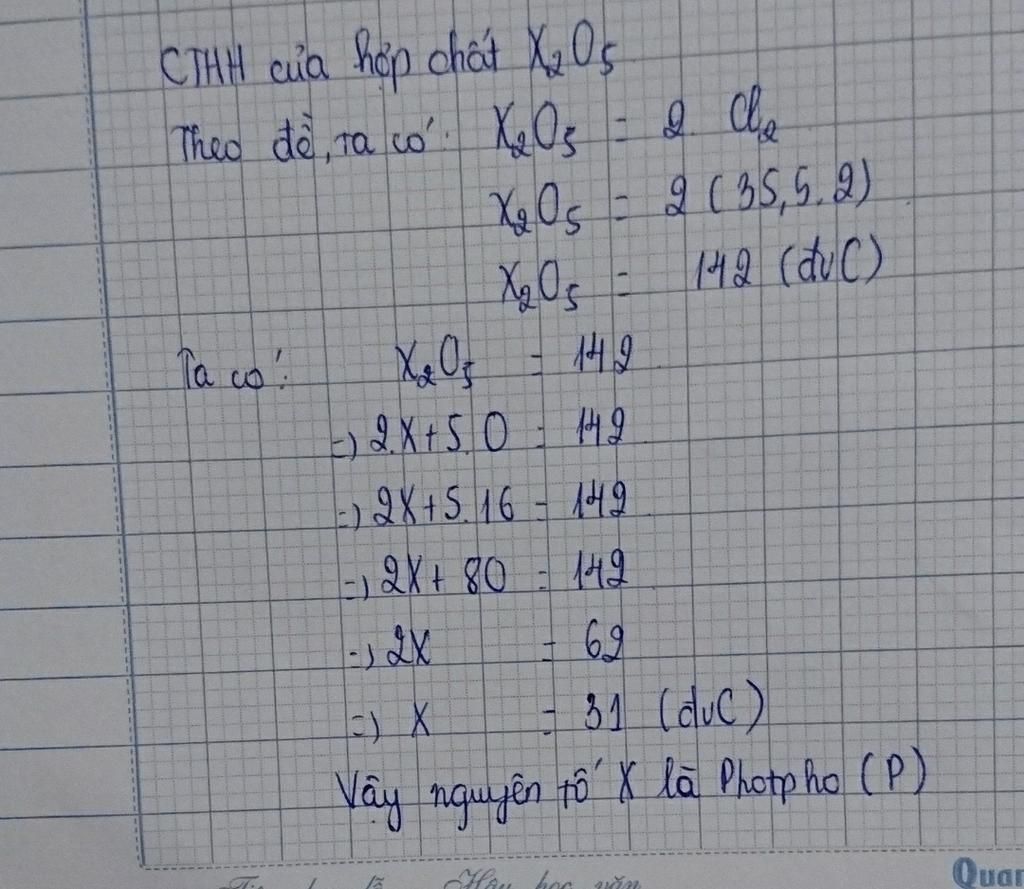 CTHH của hợp chất X₂O₅
Theo đề, ta có: X₂O₅ = 2 Cl₂
X₂O₅ = 2 (35,5.2)
X₂O₅ = 142 (đvC)
Ta có: X₂O₅ = 142
=) 2.X+5.O = 142
=) 2X+5.16 = 142
=) 2X+ 80 = 142
=) 2X = 62
=) X = 31 (đvC)
Vậy nguyên tố X là Photpho (P)
Hậu học văn